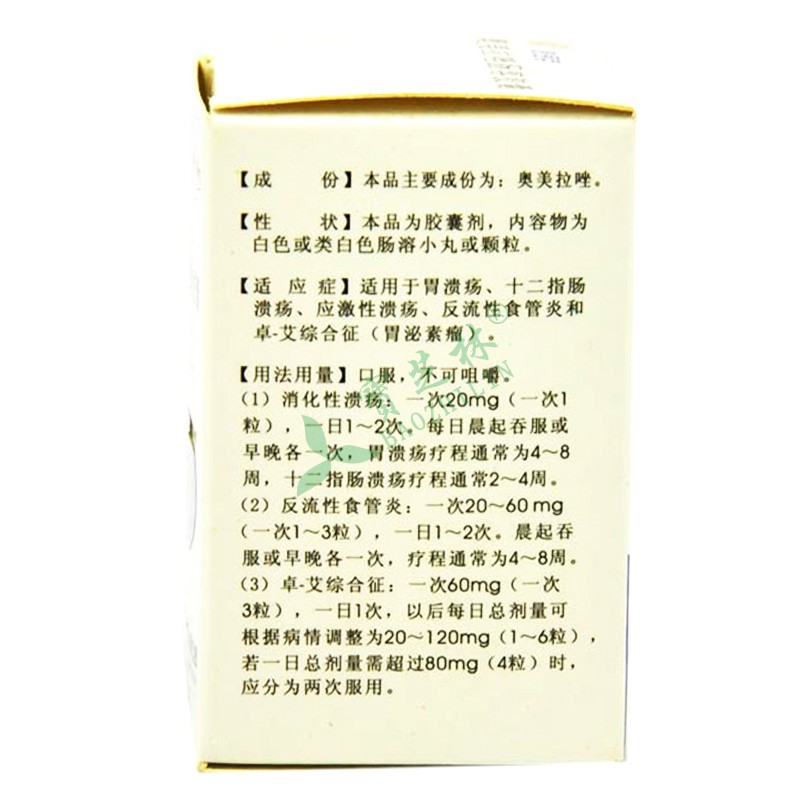 【成　　份】本品主要成份为：奥美拉唑。
【性　　状】本品为胶囊剂，内容物为
白色或类白色肠溶小丸或颗粒。
【适 应 症】适用于胃溃疡、十二指肠
溃疡、应激性溃疡、反流性食管炎和
卓-艾综合征（胃泌素瘤）。
【用法用量】口服，不可咀嚼。
（1）消化性溃疡：一次20mg（一次1
粒），一日1～2次。每日晨起吞服或
早晚各一次，胃溃疡疗程通常为4～8
周，十二指肠溃疡疗程通常2～4周。
（2）反流性食管炎：一次20～60mg
（一次1～3粒），一日1～2次。晨起吞
服或早晚各一次，疗程通常为4～8周。
（3）卓-艾综合征：一次60mg（一次
3粒），一日1次，以后每日总剂量可
根据病情调整为20～120mg（1～6粒），
若一日总剂量需超过80mg（4粒）时，
应分为两次服用。
寶芝林®
BAOZHILIN